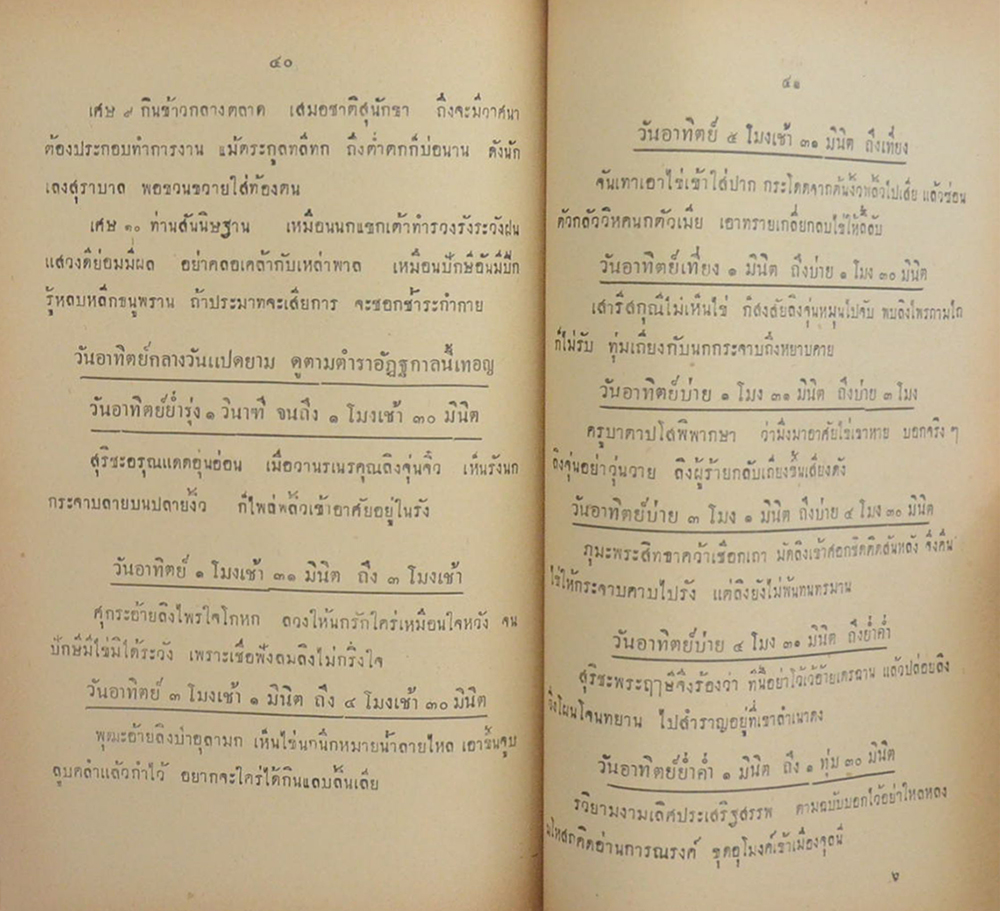 ๔๐
เศษ ๙ กินข้าวกลางตลาด เสมอชาติสุนักขา ถึงจะมีวาศนา
ต้องประกอบทำการงาน แม้ตระกูลทลึทก ถึงต่ำตกก็บ่อนาน ดังนัก
เลงสุราบาล พอชวนขวายใส่ท้องตน
เศษ ๑๐ ท่านสันนิษฐาน เหมือนนกแขกเต้าทำรวงรังระวังฝน
แสวงดีย่อมมีผล อย่าคลอเคล้ากับเหล่าพาล เหมือนปักษีอันมีปีก
รู้หลบหลีกธนูพราน ถ้าประมาทจะเสียการ จะชอกช้ำระกำกาย
วันอาทิตย์กลางวันแปดยาม ดูตามตำราอัฏฐกาลนี้เทอญ
วันอาทิตย์ย่ำรุ่ง ๑ วินาฑี จนถึง ๑ โมงเช้า ๓๐ มินิต
สุริชะอรุณแดดอุ่นอ่อน เมื่อวานรเนรคุณลิงจุ่นจิ๋ว เห็นรังนก
กระจาบลายบนปลายงิ้ว ก็โพล่พลิ้วเข้าอาศัยอยู่ในรัง
วันอาทิตย์ ๑ โมงเช้า ๓๑ มินิต ถึง ๓ โมงเช้า
ศุกระอ้ายลิงไพรใจโกหก ลวงให้นกรักใคร่เหมือนใจหวัง จน
ปักษีมีไข่มิได้ระวัง เพราะเชื่อฟังลมลิงไม่กริ่งใจ
วันอาทิตย์ ๓ โมงเช้า ๑ มินิต ถึง ๔ โมงเช้า ๓๐ มินิต
พุฒะอ้ายลิงป่าอุลามก เห็นไข่นกนึกหมายน้ำลายไหล เอาขึ้นจูบ
ลูบคลำแล้วกำไว้ อยากจะใคร่ได้กินแลบลิ้นเลีย
๔๑
วันอาทิตย์ ๔ โมงเช้า ๓๑ มินิต ถึงเที่ยง
จันเทาเอาไข่เข้าใส่ปาก กระโดดจากต้นงิ้วพลิ้วไปเสีย แล้วซ่อน
ตัวกลัววิหคนกตัวเมีย เอาทรายเกลี่ยกลบไข่ให้ลี้ลับ
วันอาทิตย์เที่ยง ๑ มินิต ถึงบ่าย ๑ โมง ๓๐ มินิต
เสารีสกุณีไม่เห็นไข่ ก็สงสัยลิงจุ่นหมุนไปจับ พบลิงไพรถามไถ
ก็ไม่รับ ทุ่มเถียงกับนกกระจาบถึงหยาบคาย
วันอาทิตย์บ่าย ๑ โมง ๓๑ มินิต ถึงบ่าย ๓ โมง
ครูบาดาปโสพิพากษา ว่ามึงมาอาศัยไข่เขาหาย บอกจริง ๆ
ลิงจุ่นอย่าวุ่นวาย ลิงผู้ร้ายกลับเถียงขึ้นเสียงดัง
วันอาทิตย์บ่าย ๓ โมง ๑ มินิต ถึงบ่าย ๔ โมง ๓๐ มินิต
ภุมะพระสิทธาคว้าเชือกเถา มัดลิงเข้าศอกชิดติดสันหลัง จึงคืน
ไข่ให้กระจาบคาบไปรัง แต่ลิงยังไม่พ้นทนทรมาน
วันอาทิตย์บ่าย ๔ โมง ๓๑ มินิต ถึงย่ำค่ำ
สุริชะพระฤาษีจึงร้องว่า ทีนี้อย่าโว้เว้อ้ายเดรฉาน แล้วปล่อยลิง
วิ่งโผนโจนทยาน ไปสำราญอยู่ที่เขาลำเนาดง
วันอาทิตย์ย่ำค่ำ ๑ มินิต ถึง ๑ ทุ่ม ๓๐ มินิต
รวิยามงามเลิศประเสริฐสรรพ ตามฉบับบอกไว้อย่าใหลหลง
มโหสถคิดอ่านการณรงค์ ขุดอุโมงค์เข้าเมืองจุลนี
๖